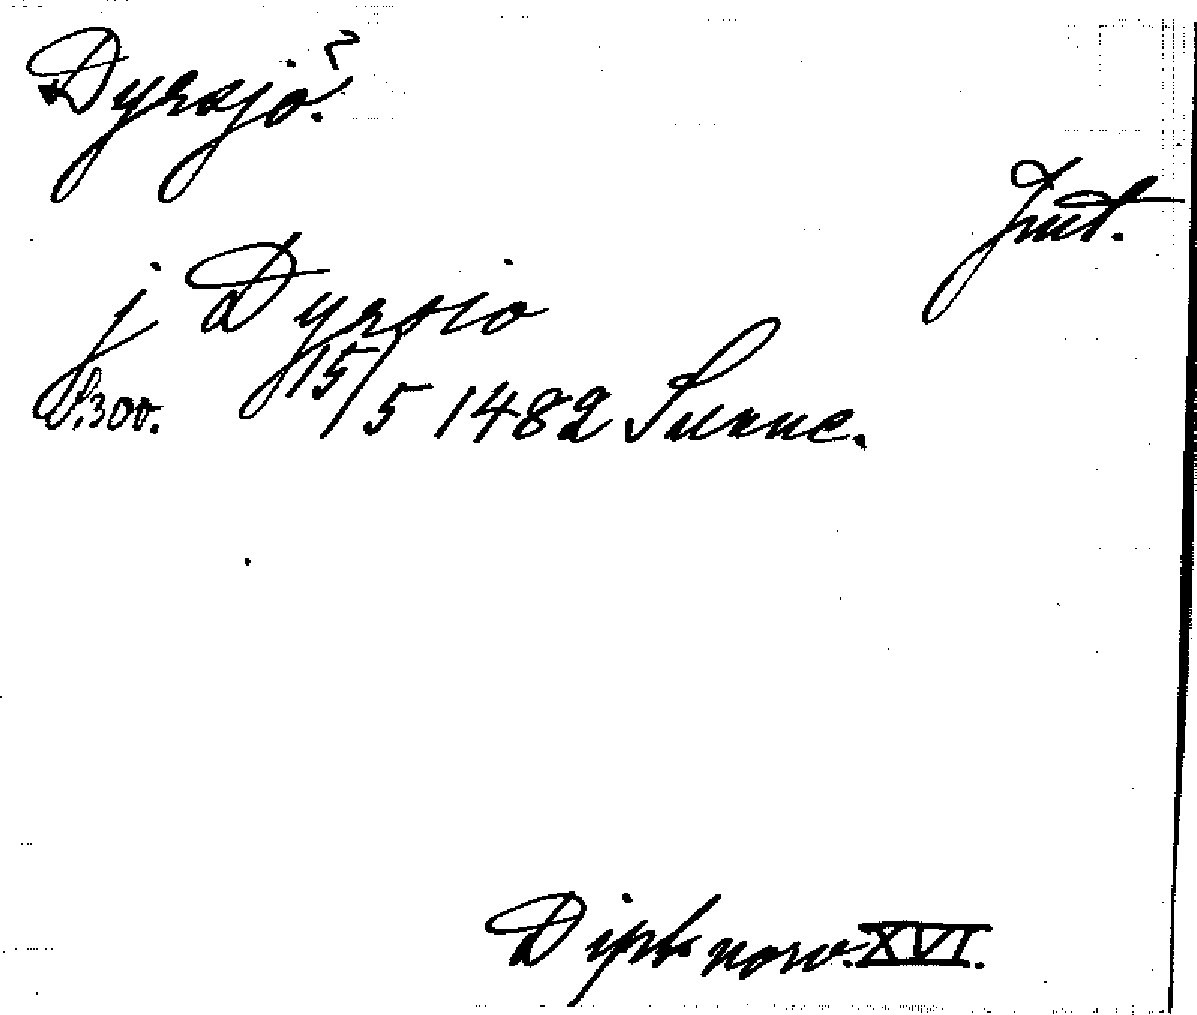 Dyrsjö?
Jmt.
j Dyrsio
S. 300. 15/5 1482 Sunne.
Dipl. norv. XVI.